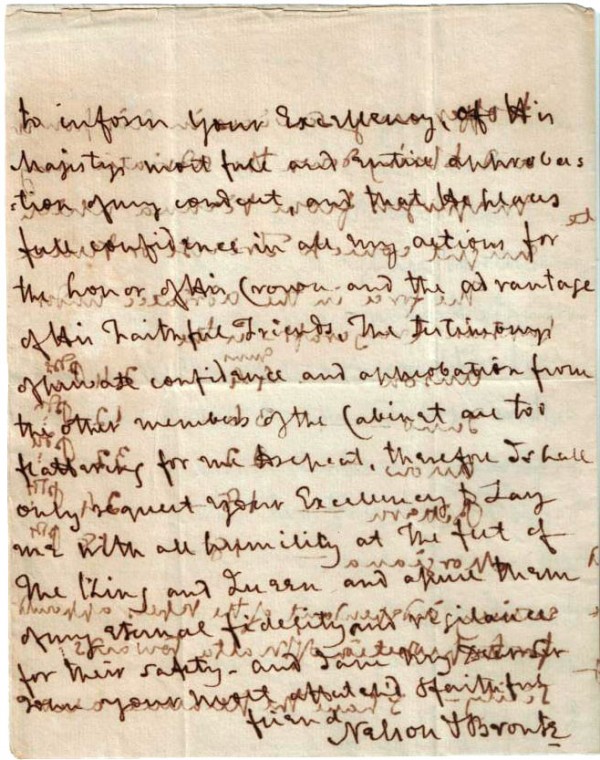 to inform your Excellency, of His
Majestys most full and entire approba=
=tion of my conduct, and that He places
full confidence in all my actions for
the honor of His Crown and the advantage
of His Faithful Friends, The testimonys
of private confidence and approbation from
the other members of the Cabinet are too
flattering for me to repeat, therefore I shall
only request your Excellency to Lay
me with all humility at The feet of
The King and Queen and assure them
of my Eternal fidelity and vigilance
for their safety - and I am Dear
your most attached & faithful
friend
Nelson & Bronte